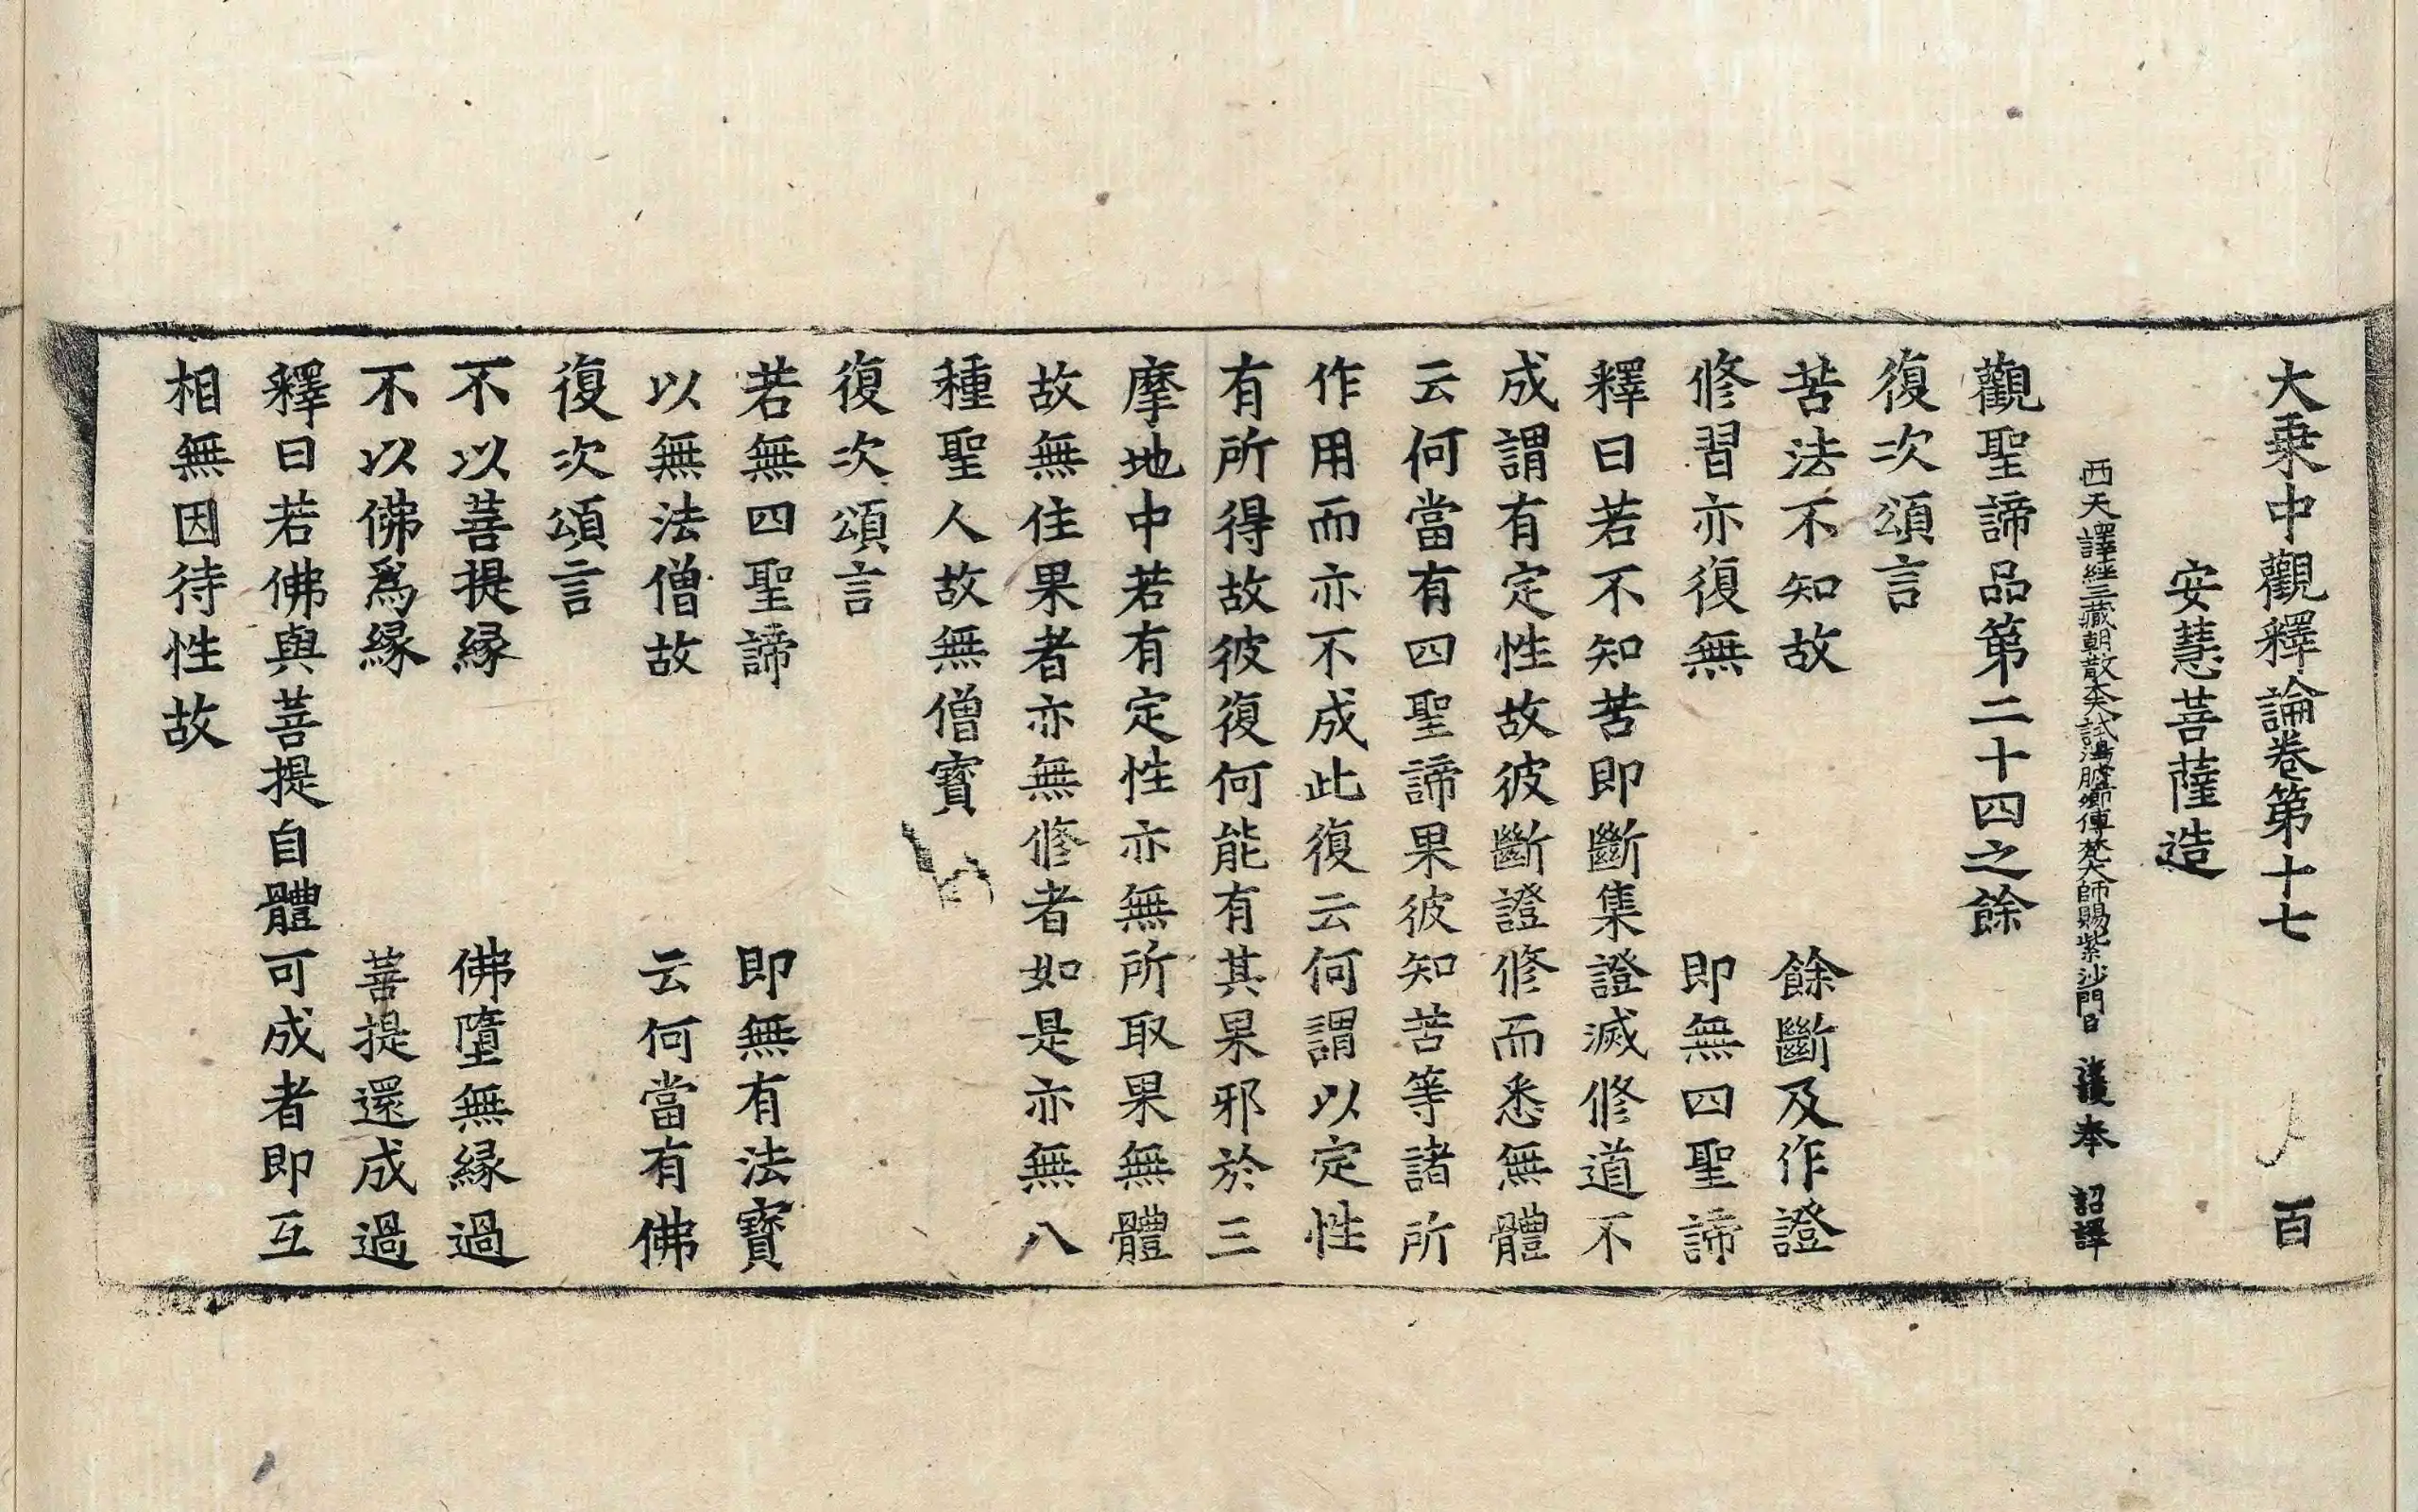 大乗中觀釋論卷第十七 百
安慧菩薩造
西天譯經三藏朝散大夫試鴻臚卿傳梵大師賜紫沙門臣 法護奉 詔譯
觀聖諦品第二十四之餘
復次頌言
苦法不知故 餘斷及作證
修習亦復無 即無四聖諦
釋曰若不知苦即斷集證滅修道不
成謂有定性故彼斷證修而悉無體
云何當有四聖諦果彼知苦等諸所
作用而亦不成此復云何謂以定性
有所得故彼復何能有其果邪於三
摩地中若有定性亦無所取果無體
故無住果者亦無修者如是亦無八
種聖人故無僧寳
復次頌言
若無四聖諦 即無有法寳
以無法僧故 云何當有佛
復次頌言
不以菩提縁 佛墮無縁過
不以佛爲縁 菩提還成過
釋曰若佛與菩提自體可成者即互
相無因待性故